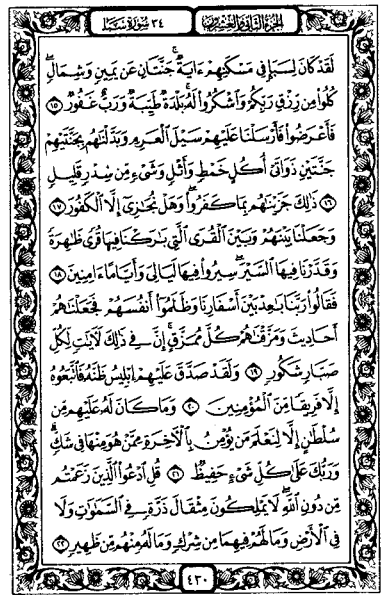 الجزء الثاني والعشرون ٣٤ سورة سبأ
لَقَدْ كَانَ لِسَبَإٍ فِى مَسْكَنِهِمْ ءَايَةٌ ۖ جَنَّتَانِ عَن يَمِينٍ وَشِمَالٍ ۖ
كُلُوا۟ مِن رِّزْقِ رَبِّكُمْ وَٱشْكُرُوا۟ لَهُۥ ۚ بَلْدَةٌ طَيِّبَةٌ وَرَبٌّ غَفُورٌ ١٥
فَأَعْرَضُوا۟ فَأَرْسَلْنَا عَلَيْهِمْ سَيْلَ ٱلْعَرِمِ وَبَدَّلْنَٰهُم بِجَنَّتَيْهِمْ
جَنَّتَيْنِ ذَوَاتَىْ أُكُلٍ خَمْطٍ وَأَثْلٍ وَشَىْءٍ مِّن سِدْرٍ قَلِيلٍ
١٦ ذَٰلِكَ جَزَيْنَٰهُم بِمَا كَفَرُوا۟ ۖ وَهَلْ نُجَٰزِىٓ إِلَّا ٱلْكَفُورَ ١٧
وَجَعَلْنَا بَيْنَهُمْ وَبَيْنَ ٱلْقُرَى ٱلَّتِى بَٰرَكْنَا فِيهَا قُرًى ظَٰهِرَةً
وَقَدَّرْنَا فِيهَا ٱلسَّيْرَ ۖ سِيرُوا۟ فِيهَا لَيَالِىَ وَأَيَّامًا ءَامِنِينَ ١٨
فَقَالُوا۟ رَبَّنَا بَٰعِدْ بَيْنَ أَسْفَارِنَا وَظَلَمُوٓا۟ أَنفُسَهُمْ فَجَعَلْنَٰهُمْ
أَحَادِيثَ وَمَزَّقْنَٰهُمْ كُلَّ مُمَزَّقٍ ۚ إِنَّ فِى ذَٰلِكَ لَءَايَٰتٍ لِّكُلِّ
صَبَّارٍ شَكُورٍ ١٩ وَلَقَدْ صَدَّقَ عَلَيْهِمْ إِبْلِيسُ ظَنَّهُۥ فَٱتَّبَعُوهُ
إِلَّا فَرِيقًا مِّنَ ٱلْمُؤْمِنِينَ ٢٠ وَمَا كَانَ لَهُۥ عَلَيْهِم مِّن
سُلْطَٰنٍ إِلَّا لِنَعْلَمَ مَن يُؤْمِنُ بِٱلْءَاخِرَةِ مِمَّنْ هُوَ مِنْهَا فِى شَكٍّ ۗ
وَرَبُّكَ عَلَىٰ كُلِّ شَىْءٍ حَفِيظٌ ٢١ قُلِ ٱدْعُوا۟ ٱلَّذِينَ زَعَمْتُم
مِّن دُونِ ٱللَّهِ ۖ لَا يَمْلِكُونَ مِثْقَالَ ذَرَّةٍ فِى ٱلسَّمَٰوَٰتِ وَلَا
فِى ٱلْأَرْضِ وَمَا لَهُمْ فِيهِمَا مِن شِرْكٍ وَمَا لَهُۥ مِنْهُم مِّن ظَهِيرٍ ٢٢
٤٣٠